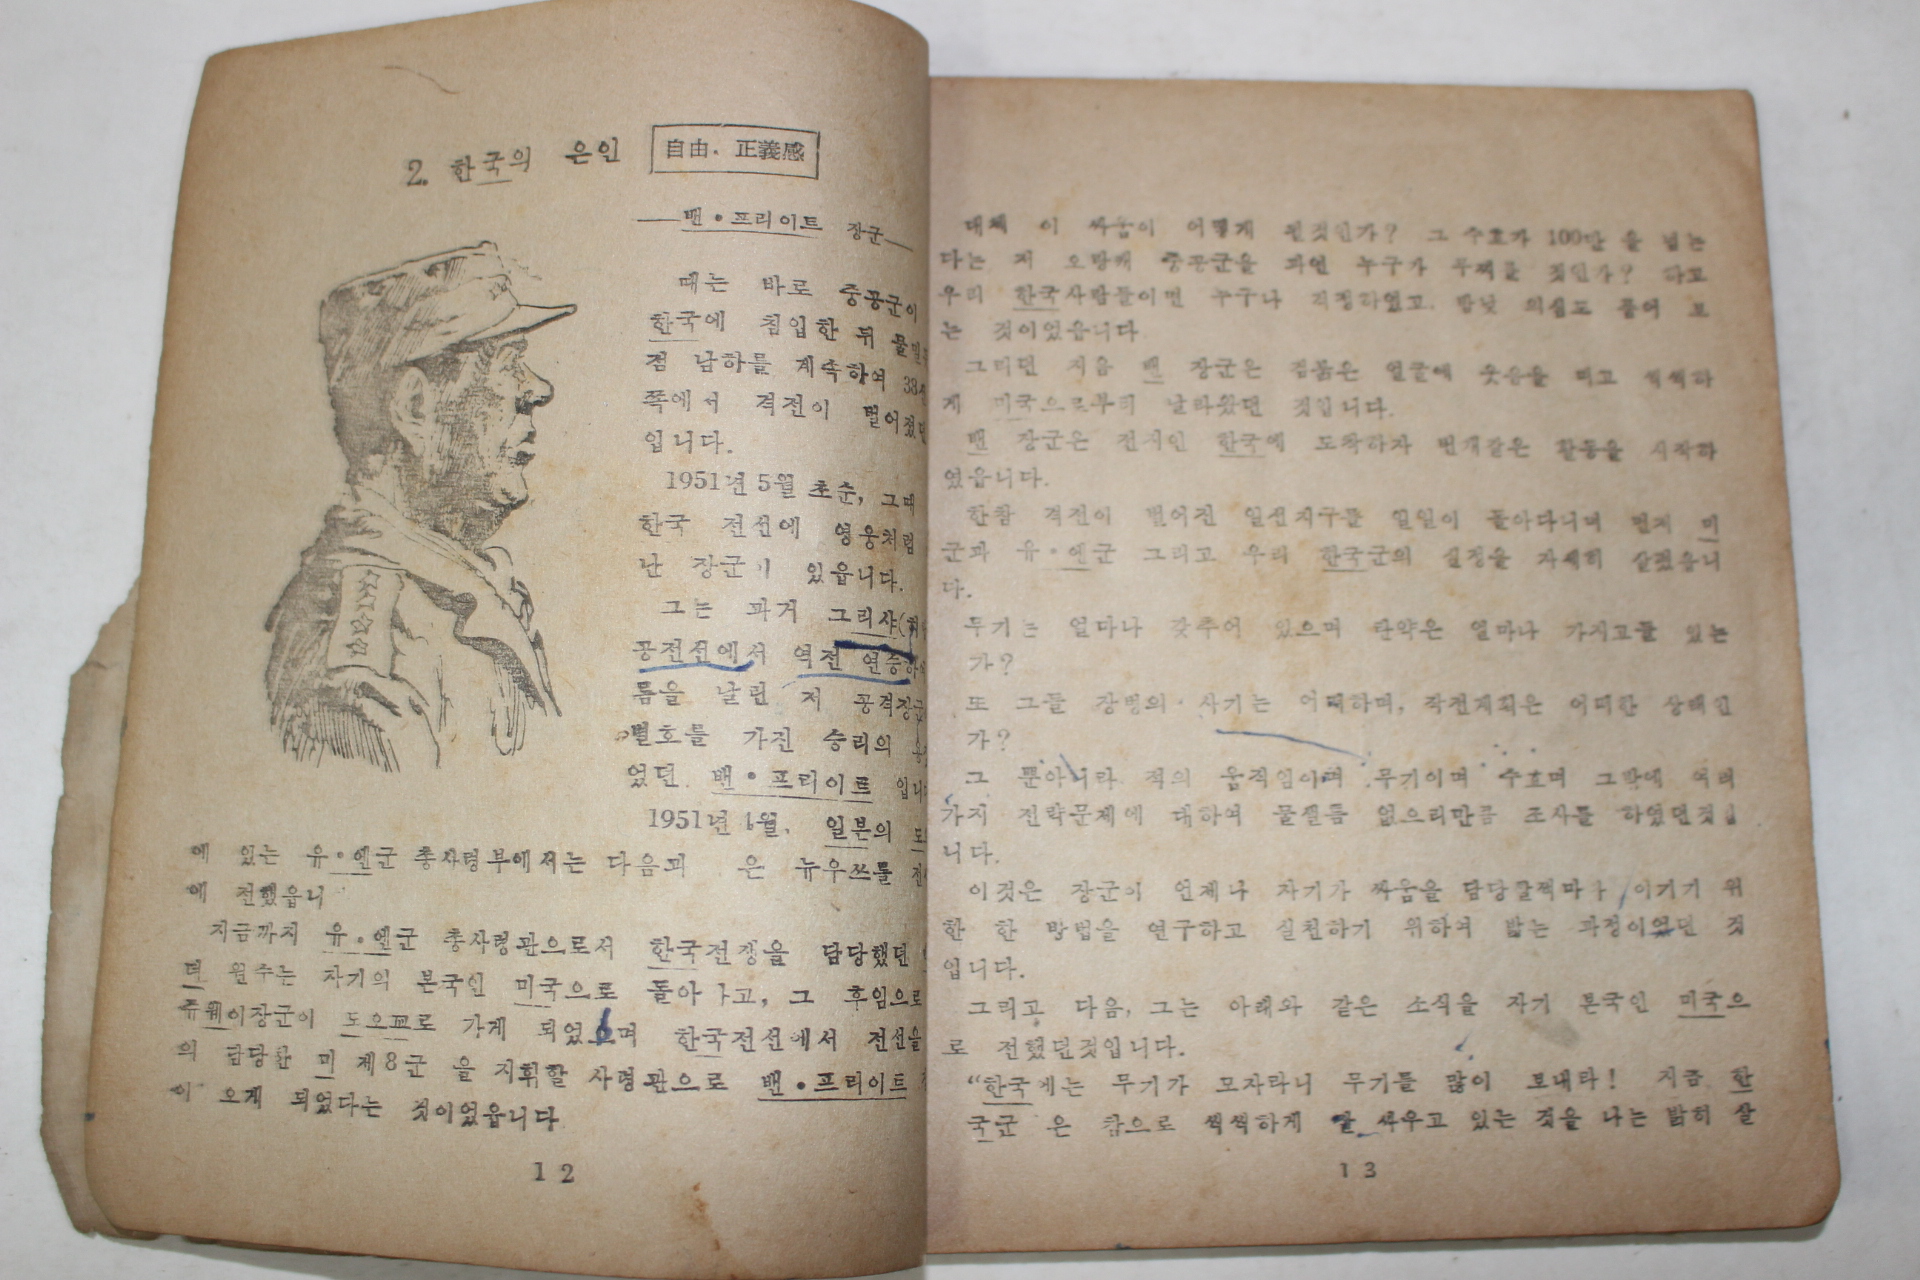 2. 한국의 은인
自由. 正義感
―밴•프리이트 장군―
때는 바로 중공군이
한국에 침입한 뒤 물밀
점 남하를 계속하여 38
쪽에서 격전이 벌어졌던
입니다.
1951년 5월 초순, 그때
한국 전선에 영웅처럼
난 장군이 있읍니다.
그는 과거 그리샤(
공전선에서 역전 연승하
름을 날린 저 공격장군
별호를 가진 승리의
었던 밴•프리이트 입니
1951년 6월, 일본의
에 있는 유•엔군 총사령부에서는 다음과 은 뉴우쓰를 전
에 전했읍니
지금까지 유•엔군 총사령관으로서 한국전쟁을 담당했던
원수는 자기의 본국인 미국으로 돌아 고, 그 후임으로
이장군이 도오교로 가게 되었으며 한국전선에서 전선을
의 담당한 미 제8군 을 지휘할 사령관으로 밴•프리이트
이 오게 되었다는 것이었읍니다
12
대체 이 싸움이 어떻게 된것인가? 그 수효가 100만 을 넘는
다는 저 오랑캐 중공군을 과연 누구가 무찌를 것인가? 하고
우리 한국사람들이면 누구나 걱정하였고, 밤낮 의심도 품어 보
는 것이었읍니다.
그러던 지음 밴 장군은 검붉은 얼굴에 웃음을 띠고 씩씩하
게 미국으로부터 날라왔던 것입니다.
밴 장군은 전지인 한국에 도착하자 번개같은 활동을 시작하
었읍니다.
한참 격전이 벌어진 일선지구를 일일이 돌아다니며 먼저 미
군과 유•엔군 그리고 우리 한국군의 실정을 자세히 살폈읍니
다.
무기는 얼마나 갖추어 있으며 탄약은 얼마나 가지고들 있는
가?
또 그들 장병의 사기는 어떠하며, 작전계획은 어떠한 상태인
가?
그 뿐아니라 적의 움직임이며 무기이며 수효며 그밖에 여러
가지 전략문제에 대하여 물샐틈 없으리만큼 조사를 하였던것입
니다.
이것은 장군이 언제나 자기가 싸움을 담당할적마다 이기기 위
한 한 방법을 연구하고 실천하기 위하여 밟는 과정이었던 것
입니다.
그리고 다음, 그는 아래와 같은 소식을 자기 본국인 미국으
로 전했던것입니다.
“한국에는 무기가 모자라니 무기를 많이 보내라! 지금 한
국군 은 참으로 씩씩하게 잘 싸우고 있는 것을 나는 밝히 살
13